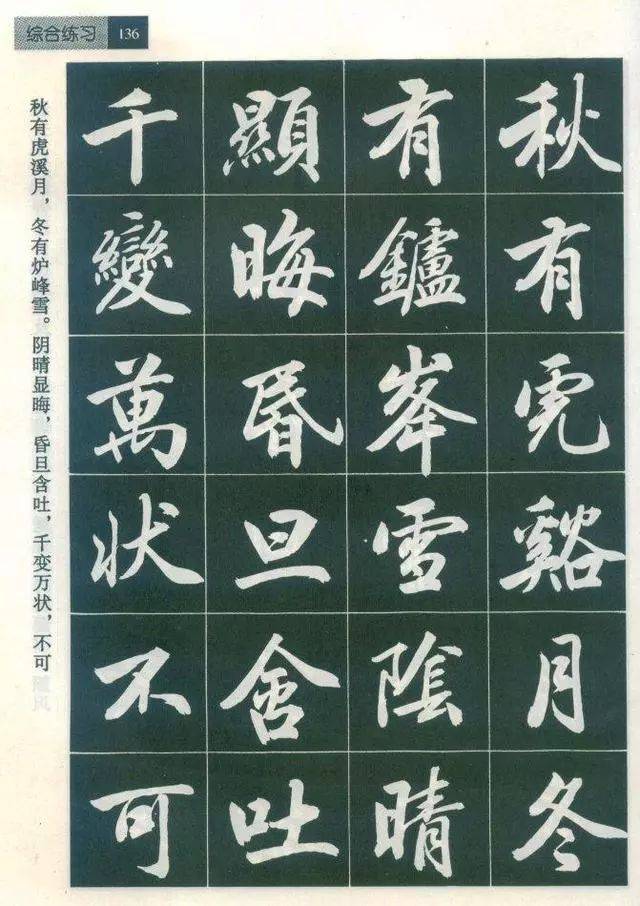 综合练习 136
秋有虎溪月，冬有炉峰雪。阴晴显晦，昏旦含吐，千变万状，不可
秋有虎谿月冬
有鑪峯雪陰晴
顯晦昏旦含吐
千變萬状不可